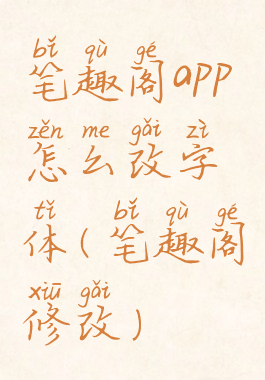 bǐ qù gé
笔趣阁app
zěn me gǎi zì
怎么改字
tǐ bǐ qù gé
体(笔趣阁
xiū gǎi
修改)